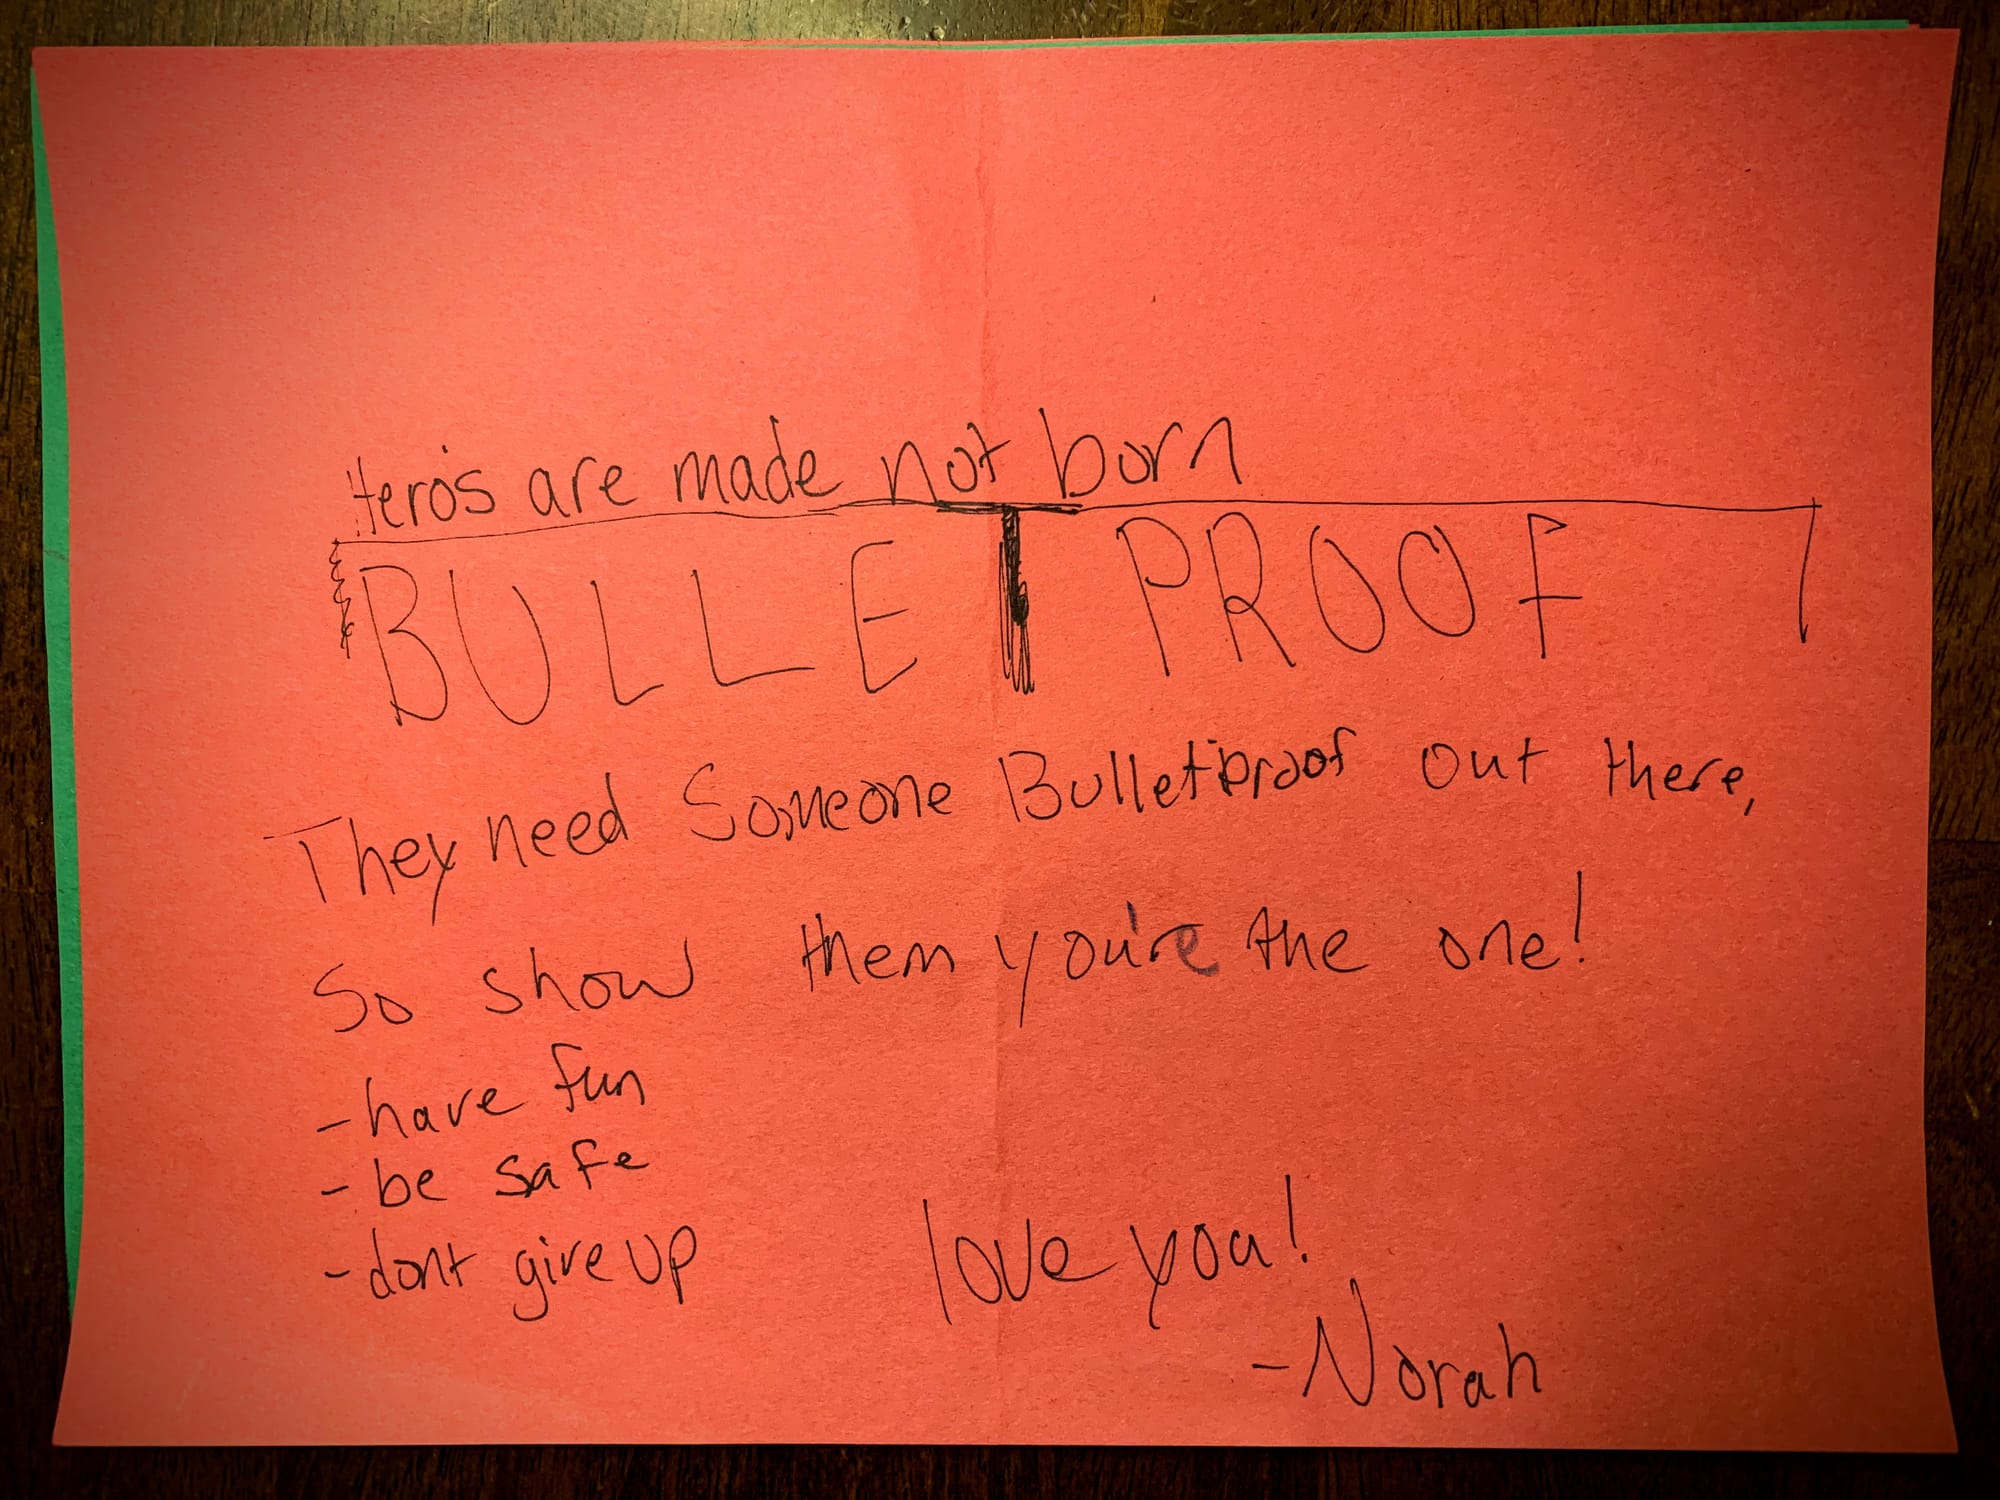 Hero's are made not born
BULLETPROOF
They need Someone Bulletproof out there,
So show them you're the one!
- have fun
- be safe
- dont give up
love you!
- Norah